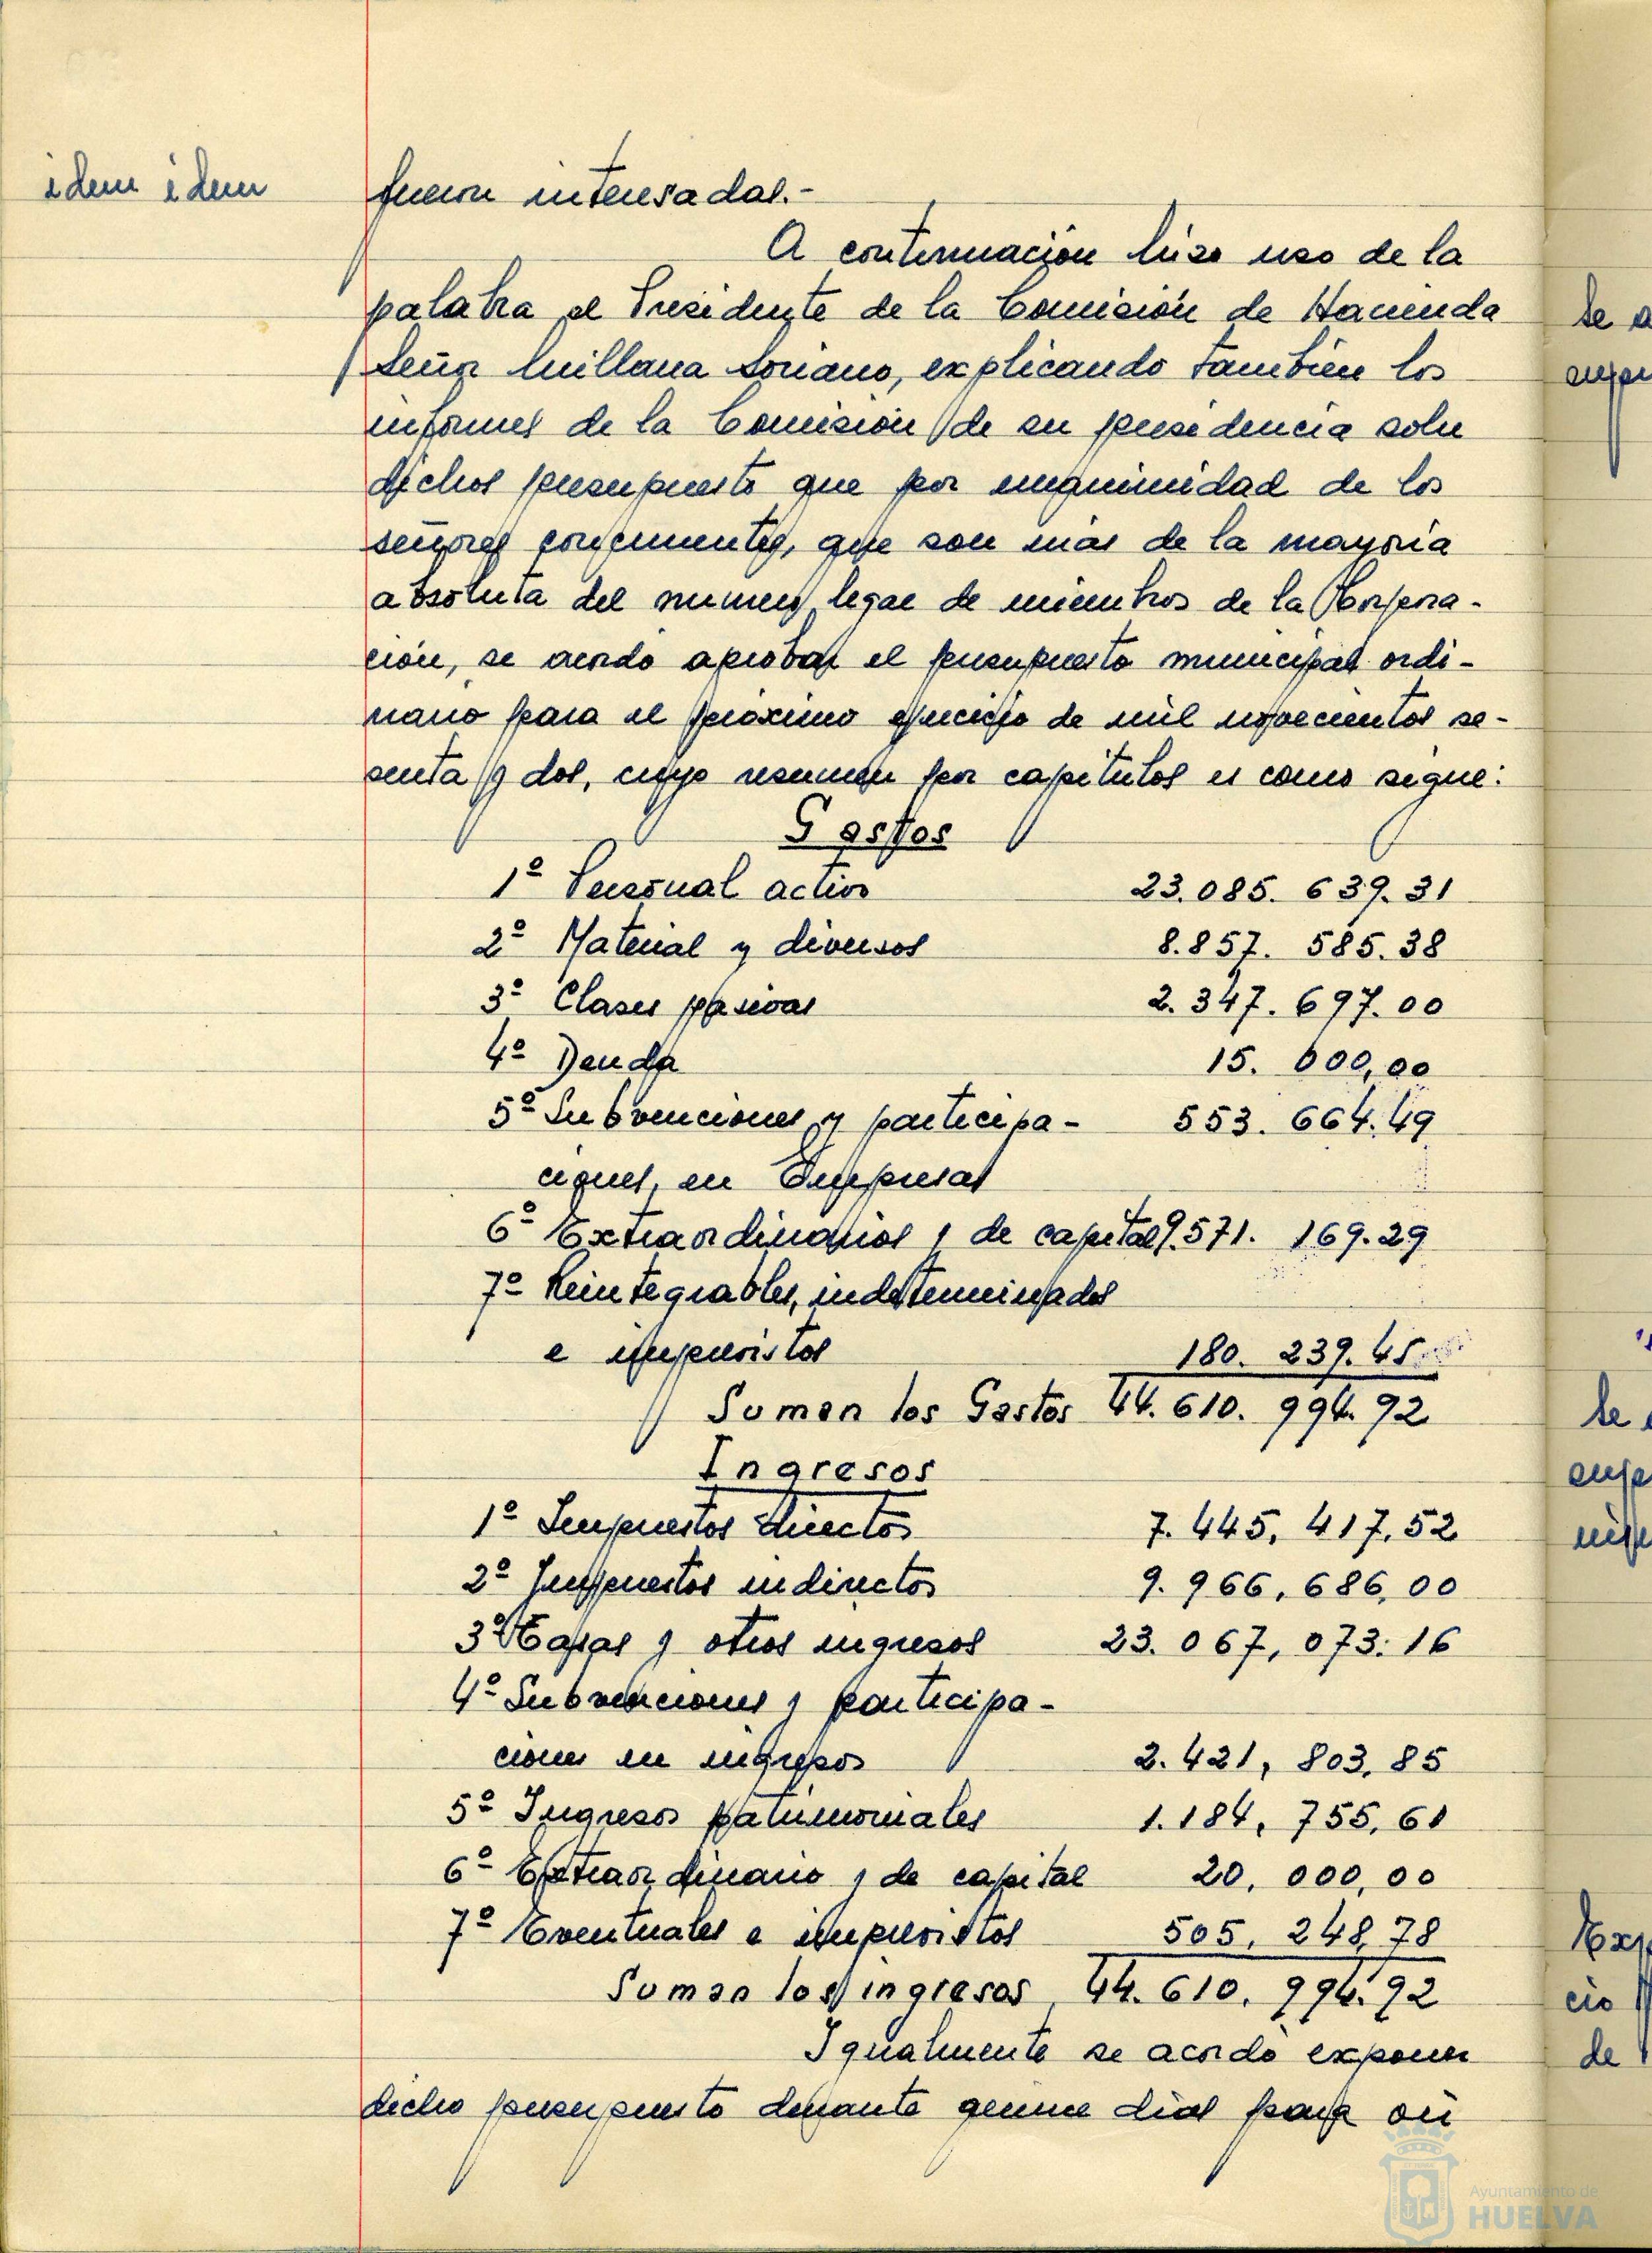 idem idem
fueron interesadas.-
A continuación hizo uso de la
palabra el Presidente de la Comisión de Hacienda
Señor Millana Soriano, explicando también los
informes de la Comisión de su presidencia sobre
dichos presupuesto que por unanimidad de los
señores concurrentes, que son más de la mayoría
absoluta del numero legal de miembros de la Corpora-
ción, se acordo aprobar el presupuesto municipal ordi-
nario para el próximo ejercicio de mil novecientos se-
senta y dos, cuyo resumen por capitulos es como sigue:
Gastos
1º Personal activo 23.085.639.31
2º Material y diversos 8.857.585.38
3º Clases pasivas 2.347.697.00
4º Deuda 15.000,00
5º Subvenciones y participa- 553.664.49
ciones, en Empresas
6º Extraordinarios y de capital 9.571.169.29
7º Reintegrables, indeterminados
e imprevistos 180.239.45
Suman los Gastos 44.610.994.92
Ingresos
1º Impuestos directos 7.445,417,52
2º Impuestos indirectos 9.966,686,00
3º Tasas y otros ingresos 23.067,073.16
4º Subvenciones y participa-
ciones en ingresos 2.421,803,85
5º Ingresos patrimoniales 1.184,755,61
6º Extraordinario y de capital 20,000,00
7º Eventuales e imprevistos 505,248,78
Suman los ingresos 44.610,994.92
Igualmente se acordó exponer
dicho presupuesto durante quince dias para oir
Se
Se
de
Ayuntamiento de
HUELVA